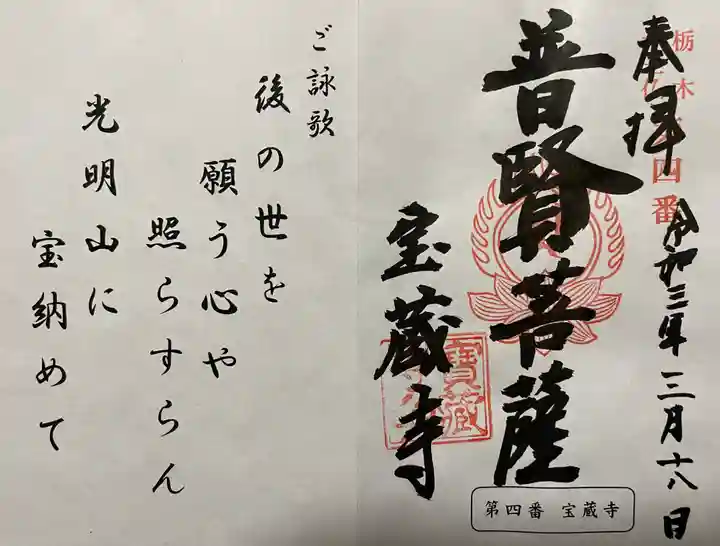 栃木
四番
奉拝
令和三年三月十八日
普賢菩薩
宝蔵寺
寶蔵
第四番 宝蔵寺
ご詠歌
後の世を
願う心や
照らすらん
光明山に
宝納めて